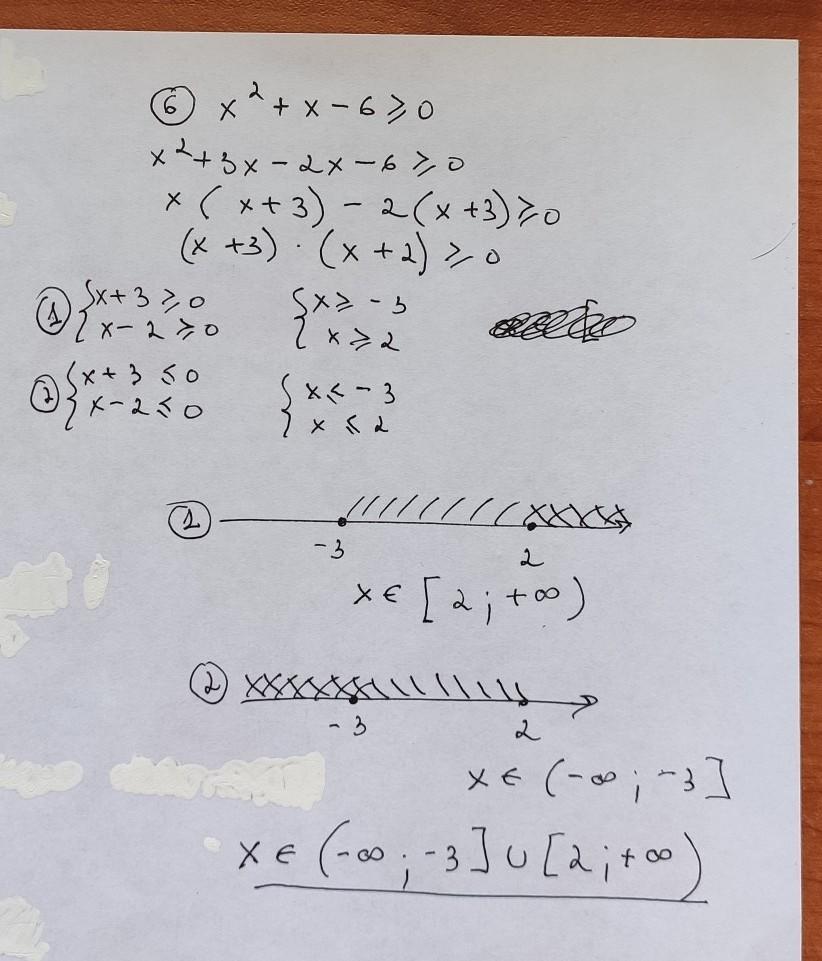 ⑥ x² + x - 6 ⩾ 0
x² + 3x - 2x - 6 ⩾ 0
x ( x + 3) - 2 (x + 3) ⩾ 0
(x + 3) · (x + 2) ⩾ 0
① { x + 3 ⩾ 0 { x ⩾ - 3
{ x - 2 ⩾ 0 { x ⩾ 2
② { x + 3 ⩽ 0 { x ⩽ - 3
{ x - 2 ⩽ 0 { x ⩽ 2
①
-3 2
x ∈ [ 2 ; +∞ )
②
- 3 2
x ∈ (-∞ ; -3]
x ∈ (-∞ ; -3] ∪ [2 ; +∞)